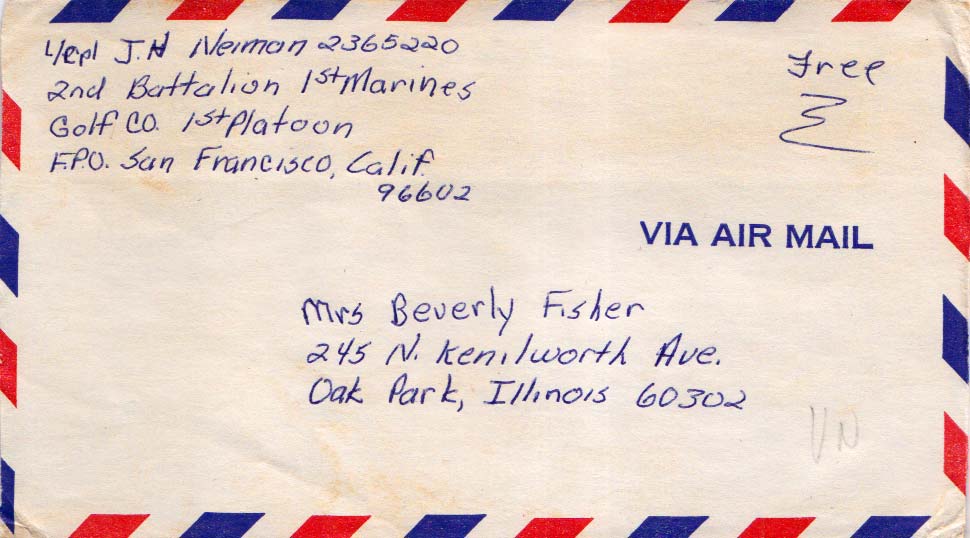 L/Cpl J.H Neiman 2365220
2nd Battalion 1st Marines
Golf CO. 1st Platoon
F.P.O. San Francisco, Calif.
96602
Free
VIA AIR MAIL
Mrs Beverly Fisher
245 N. Kenilworth Ave.
Oak Park, Illinois 60302
VN